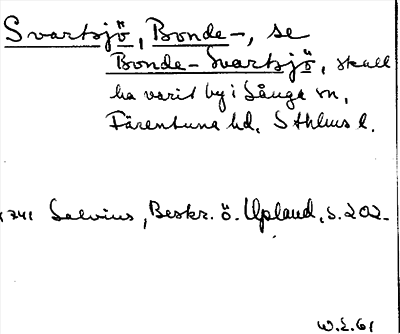 Svartsjö, Bonde-, se
Bonde-Svartsjö, skall
ha varit by i Sånga sn,
Färentuna hd, Sthlms l.
1741 Salvius, Beskr. ö. Upland, s. 202.
W.L. 61